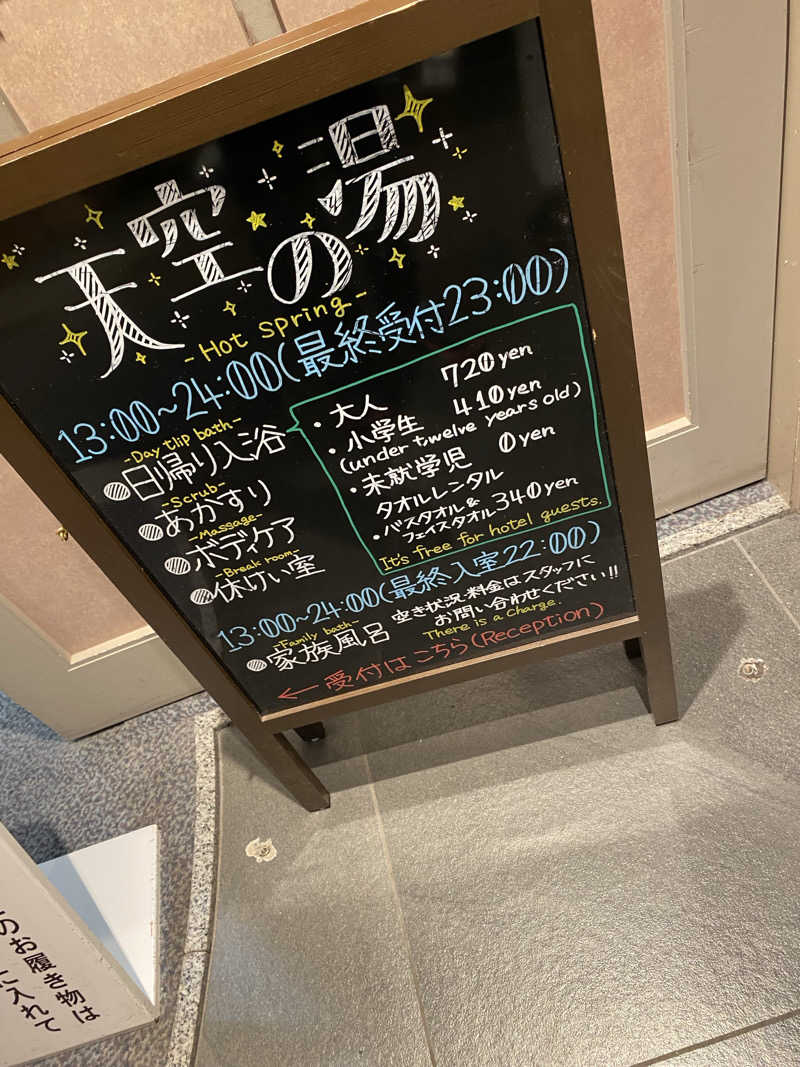 天空の湯
-Hot Spring-
13:00~24:00(最終受付23:00)
-Day tlip bath-
●日帰り入浴
-Scrub-
●あかすり
-Massage-
●ボディケア
-Break room-
●休けい室
・大人 720yen
・小学生 410yen
(under twelve years old)
・未就学児 0yen
タオルレンタル
・バスタオル&
フェイスタオル 340yen
It's free for hotel guests.
13:00~24:00(最終入室22:00)
-Family bath-
●家族風呂
空き状況・料金はスタッフに
お問い合わせください!!
There is a charge.
←受付はこちら(Reception)
のお履き物は
に入れて